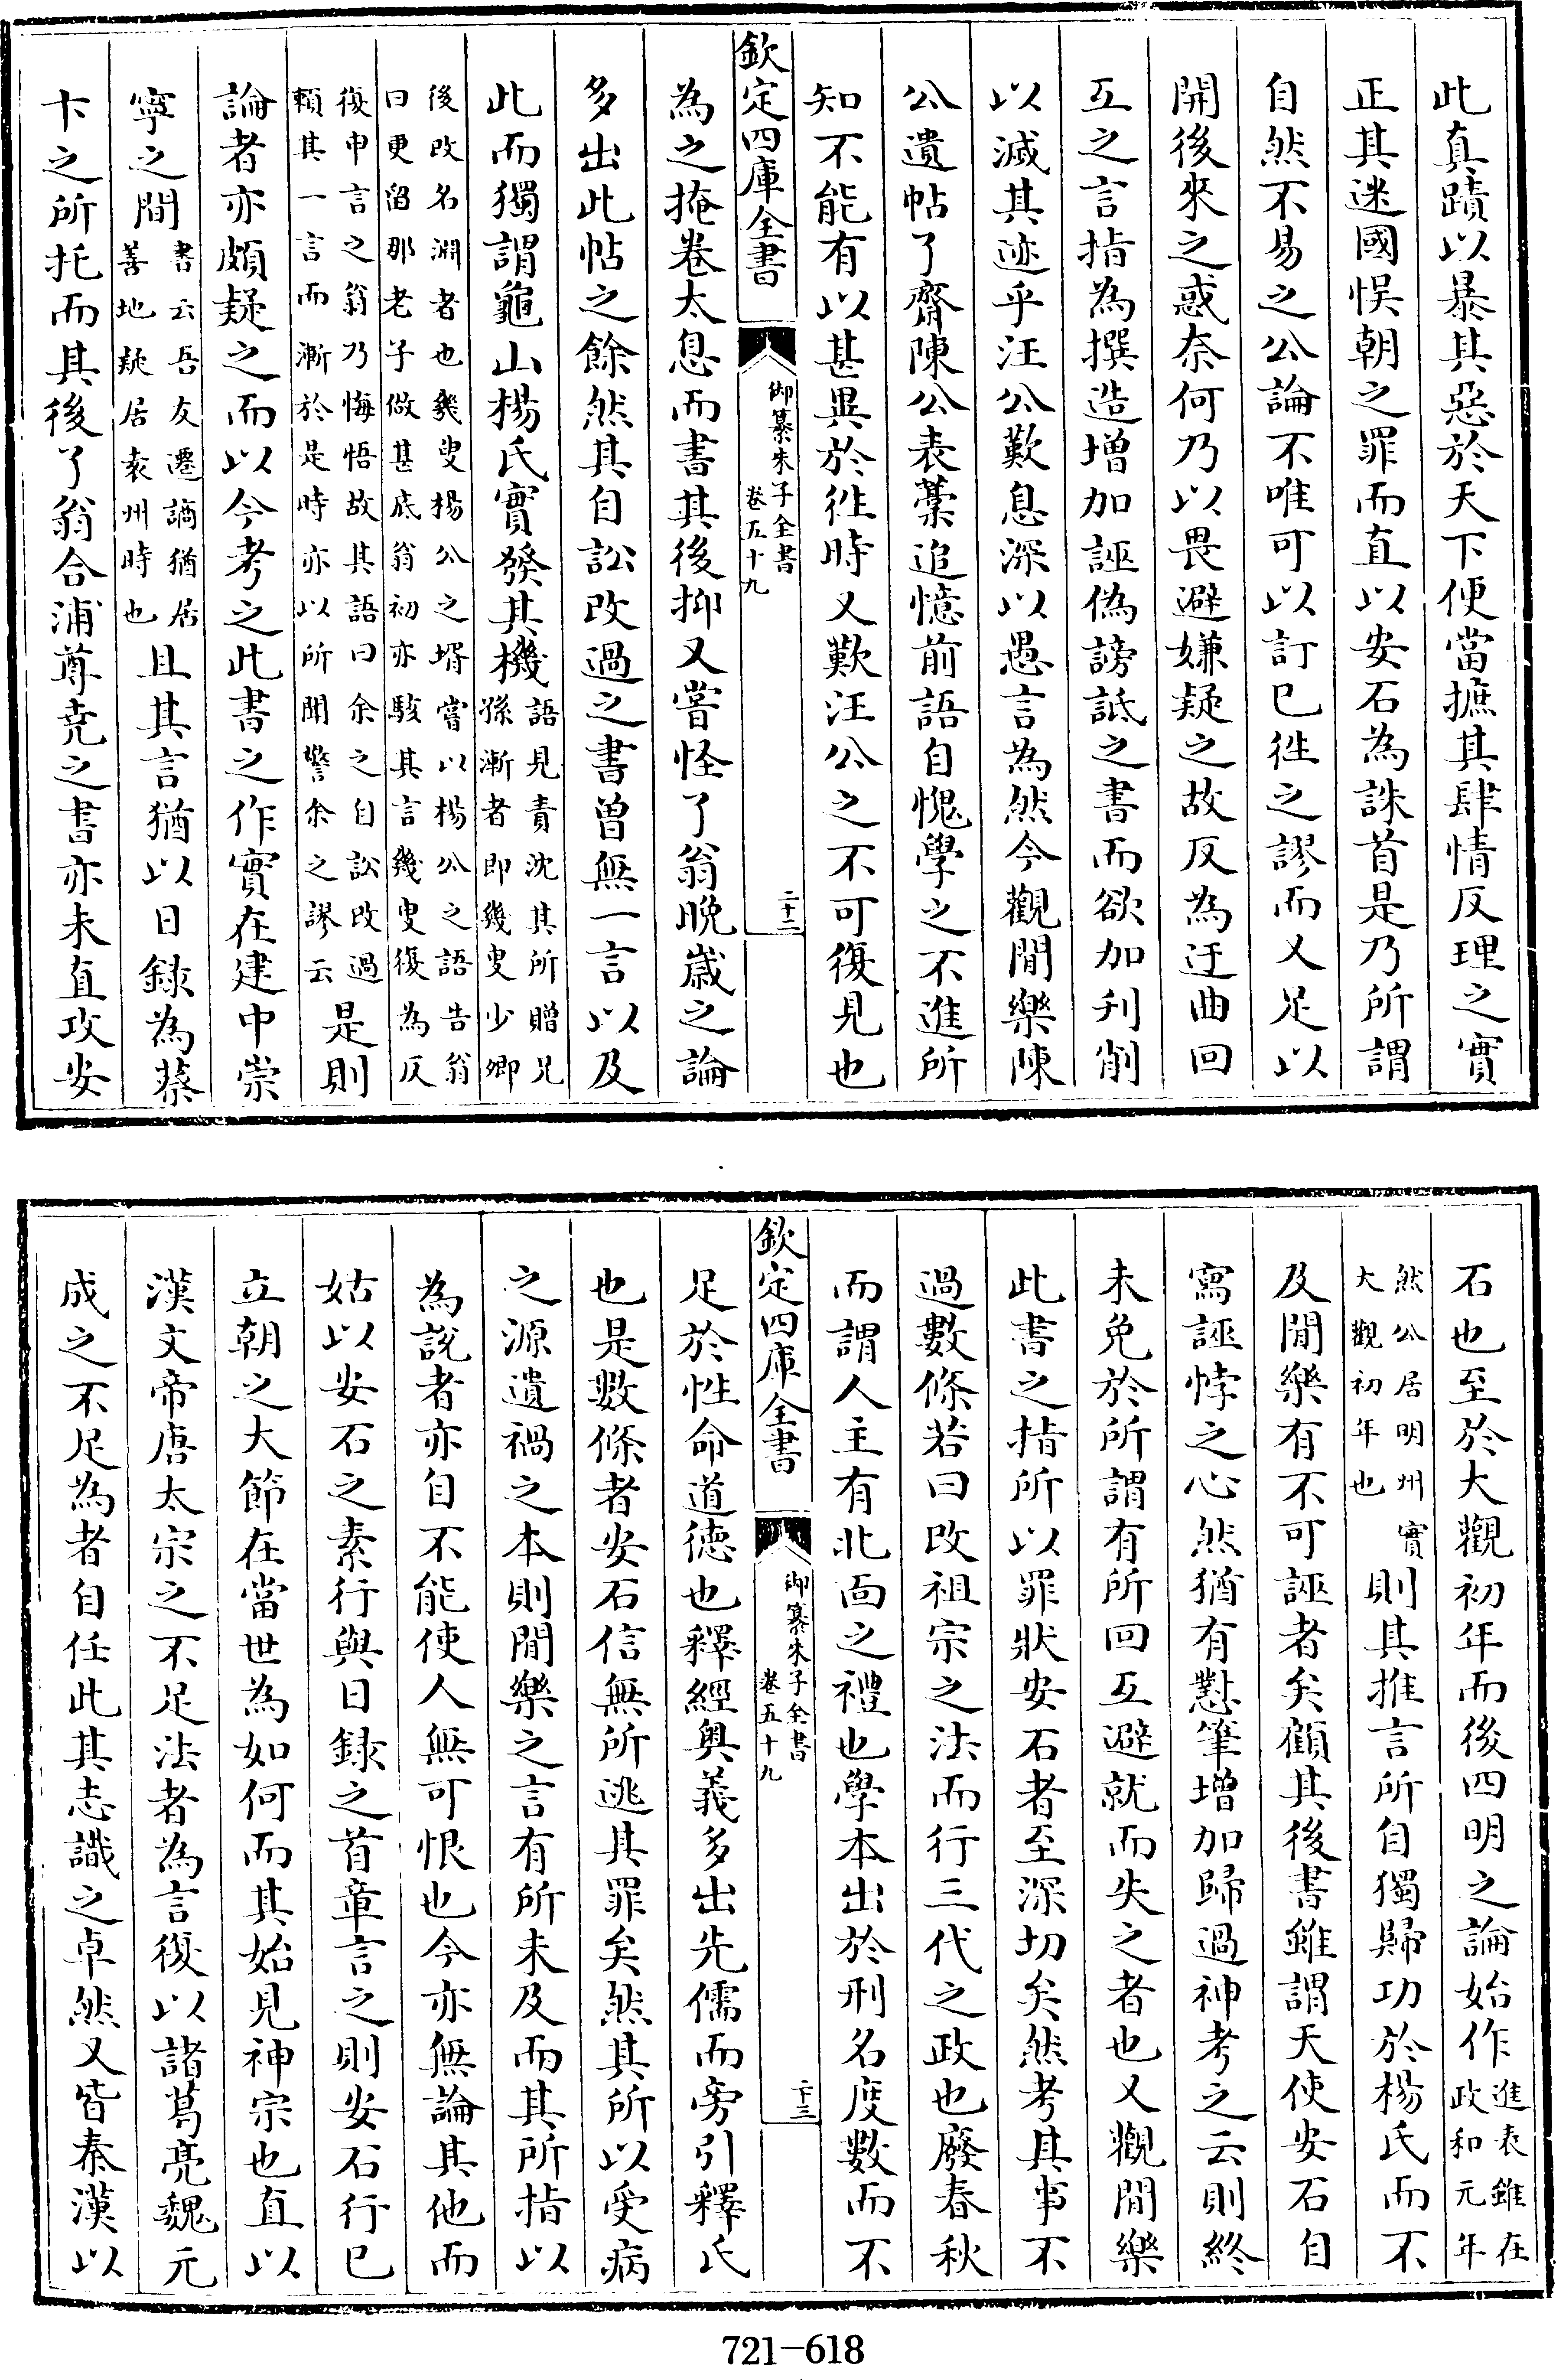 此真蹟以暴其惡於天下便當摭其肆情反理之實
正其迷國悞朝之罪而直以安石為誅首是乃所謂
自然不易之公論不唯可以訂已徃之謬而又足以
開後來之惑奈何乃以畏避嫌疑之故反為迂曲回
互之言指為撰造增加誣偽謗詆之書而欲加刋削
以滅其迹乎汪公歎息深以愚言為然今觀閒樂陳
公遺帖了齋陳公表藁追憶前語自愧學之不進所
知不能有以甚異於徃時又歎汪公之不可復見也
欽定四庫全書
御纂朱子全書
卷五十九
二十二
為之掩卷太息而書其後抑又嘗怪了翁晚歲之論
多出此帖之餘然其自訟改過之書曾無一言以及
此而獨謂龜山楊氏實發其機
語見責沈其所贈兄
孫漸者即幾叟少卿
後改名淵者也幾叟楊公之壻嘗以楊公之語告翁
曰更留那老子做甚底翁初亦駭其言幾叟復為仄
復申言之翁乃悔悟故其語曰余之自訟改過
頼其一言而漸於是時亦以所聞警余之謬云
是則
論者亦頗疑之而以今考之此書之作實在建中崇
寧之間
書云吾友遷謫猶居
善地疑居袁州時也
且其言猶以日錄為蔡
卞之所托而其後了翁合浦尊堯之書亦未直攻安
石也至於大觀初年而後四明之論始作
進表雖在
政和元年
然公居明州實
大觀初年也
則其推言所自獨歸功於楊氏而不
及閒樂有不可誣者矣顧其後書雖謂天使安石自
寫誣悖之心然猶有懟筆增加歸過神考之云則終
未免於所謂有所回互避就而失之者也又觀閒樂
此書之指所以罪狀安石者至深切矣然考其事不
過數條若曰改祖宗之法而行三代之政也廢春秋
而謂人主有北面之禮也學本出於刑名度數而不
欽定四庫全書
御纂朱子全書
卷五十九
二十三
足於性命道德也釋經奧義多出先儒而旁引釋氏
也是數條者安石信無所逃其罪矣然其所以受病
之源遺禍之本則閒樂之言有所未及而其所指以
為說者亦自不能使人無可恨也今亦無論其他而
姑以安石之素行與日録之首章言之則安石行已
立朝之大節在當世為如何而其始見神宗也直以
漢文帝唐太宗之不足法者為言復以諸葛亮魏元
成之不足為者自任此其志識之卓然又皆秦漢以
721-618